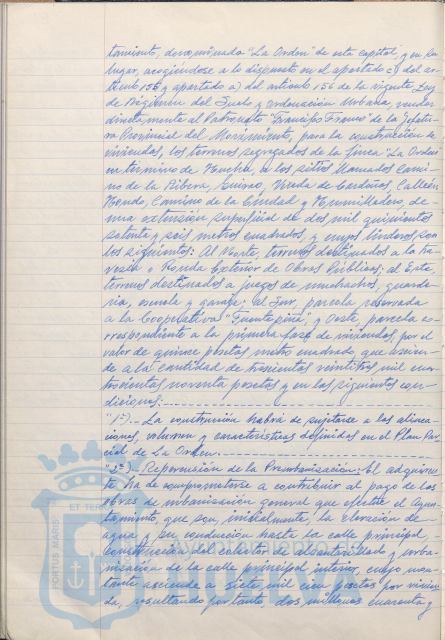 tamiento, denominado "La Orden" de esta capital, y en su
lugar, acogiéndose a lo dispuesto en el apartado c) del ar-
tículo 155 y apartado a) del artículo 156 de la vigente Ley
de Régimen del Suelo y Ordenación Urbana, vender
directamente al Patronato "Francisco Franco" de la Jefatu-
ra Provincial del Movimiento, para la construcción de
viviendas, los terrenos segregados de la finca "La Orden"
en término de Huelva, a los sitios llamados Cami-
no de la Ribera, Viuda de Cerdeños, Callejón
Hondo, Camino de la Ciudad y Humilladero, de
una extensión superficial de dos mil quinientos
setenta y seis metros cuadrados, y cuyos linderos son
los siguientes: Al Norte, terrenos destinados a la tra-
vesía y Ronda Exterior de Obras Públicas; al Este
terrenos destinados a juegos de muchachos, guarde-
ría, escuela y garage; al Sur, parcela reservada
a la Cooperativa "Fuentepiña", y Oeste, parcela co-
rrespondiente a la primera fase de viviendas, por el
valor de quince pesetas metro cuadrado que ascien-
de a la cantidad de trescientas veintitrés mil cua-
trocientas noventa pesetas y en las siguientes con-
diciones:
"1ª).- La construcción habrá de sujetarse a las alinea-
ciones, volumen y características definidas en el Plan Par-
cial de La Orden.
"2ª).- Repercusión de la Preurbanización: El adquiren-
te ha de comprometerse a contribuir al pago de las
obras de urbanización general que efectúe el Ayun-
tamiento, que son, inicialmente, la elevación de
agua y su conducción hasta la calle principal,
construcción del colector de alcantarillado y urba-
nización de la calle principal interior, cuyo mon-
tante asciende a siete mil cien pesetas por vivien-
da, resultando por tanto, dos millones cuarenta y
PORTUS MARIS
ET TERRAE
HUELVA